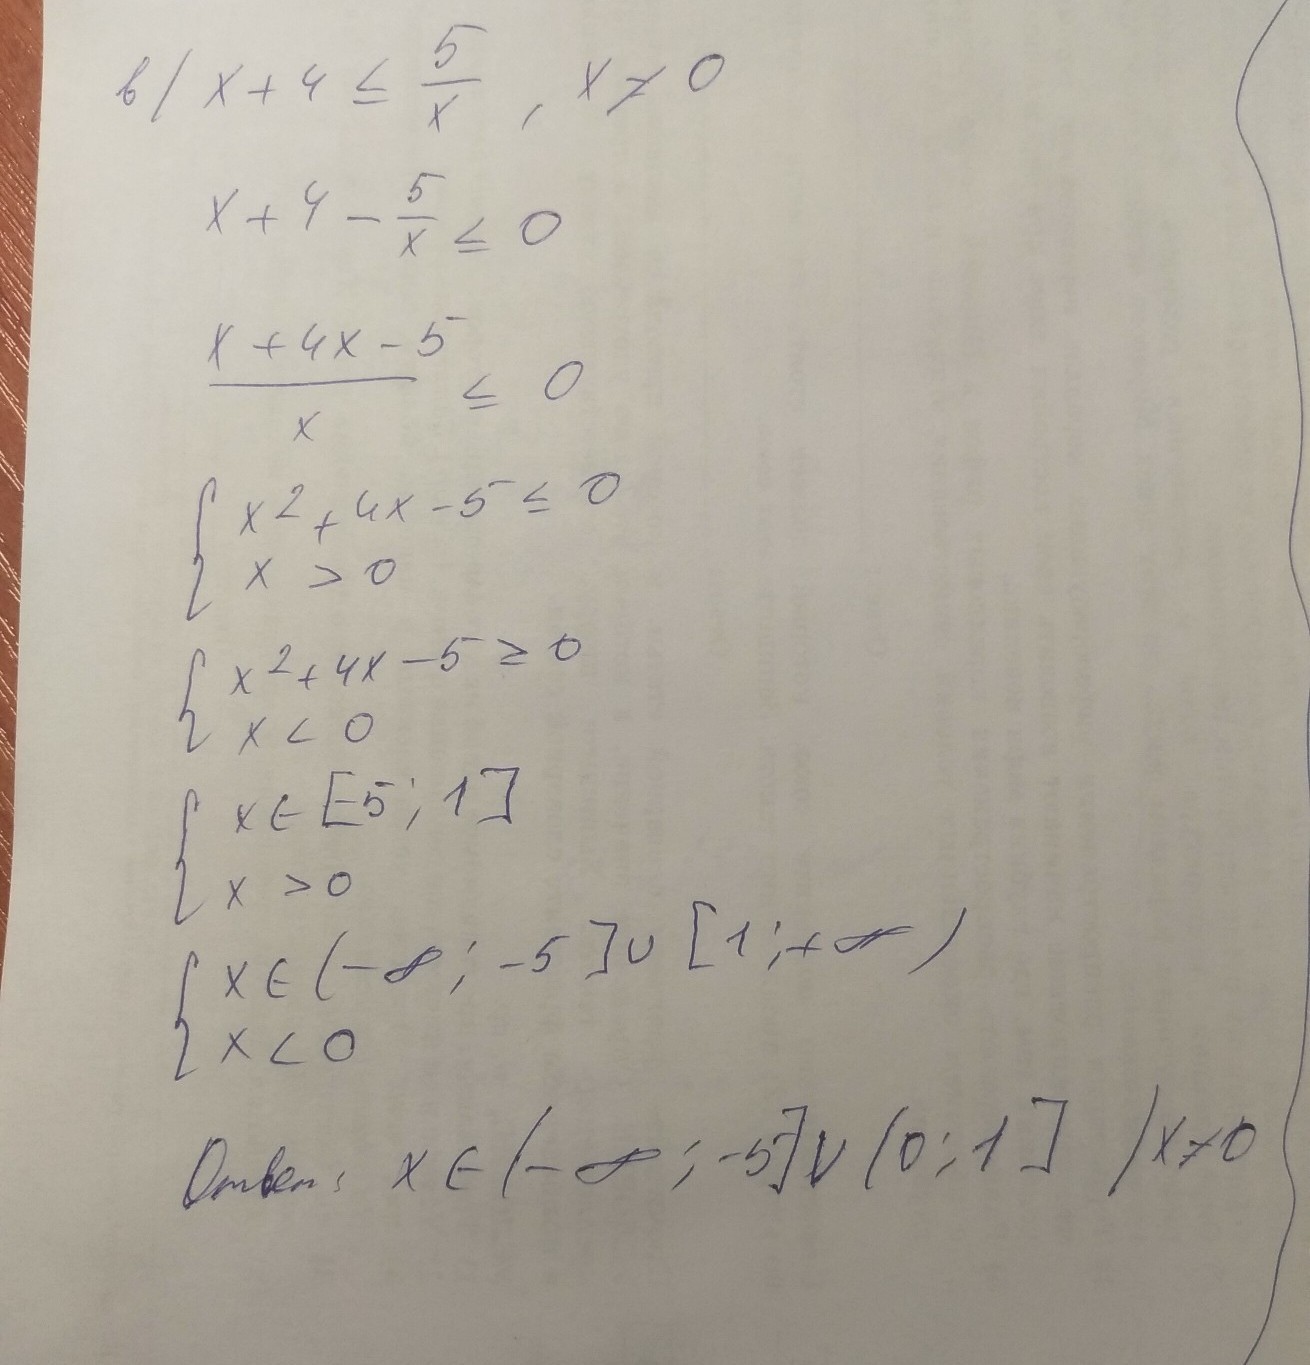 в) x + 4 ≤ 5/x , x ≠ 0
x + 4 - 5/x ≤ 0
(x + 4x - 5)/x ≤ 0
{ x² + 4x - 5 ≤ 0
x > 0
{ x² + 4x - 5 ≥ 0
x < 0
{ x ∈ [-5; 1]
x > 0
{ x ∈ (-∞; -5] ∪ [1; +∞)
x < 0
Ответ: x ∈ (-∞; -5] ∪ (0; 1] / x ≠ 0